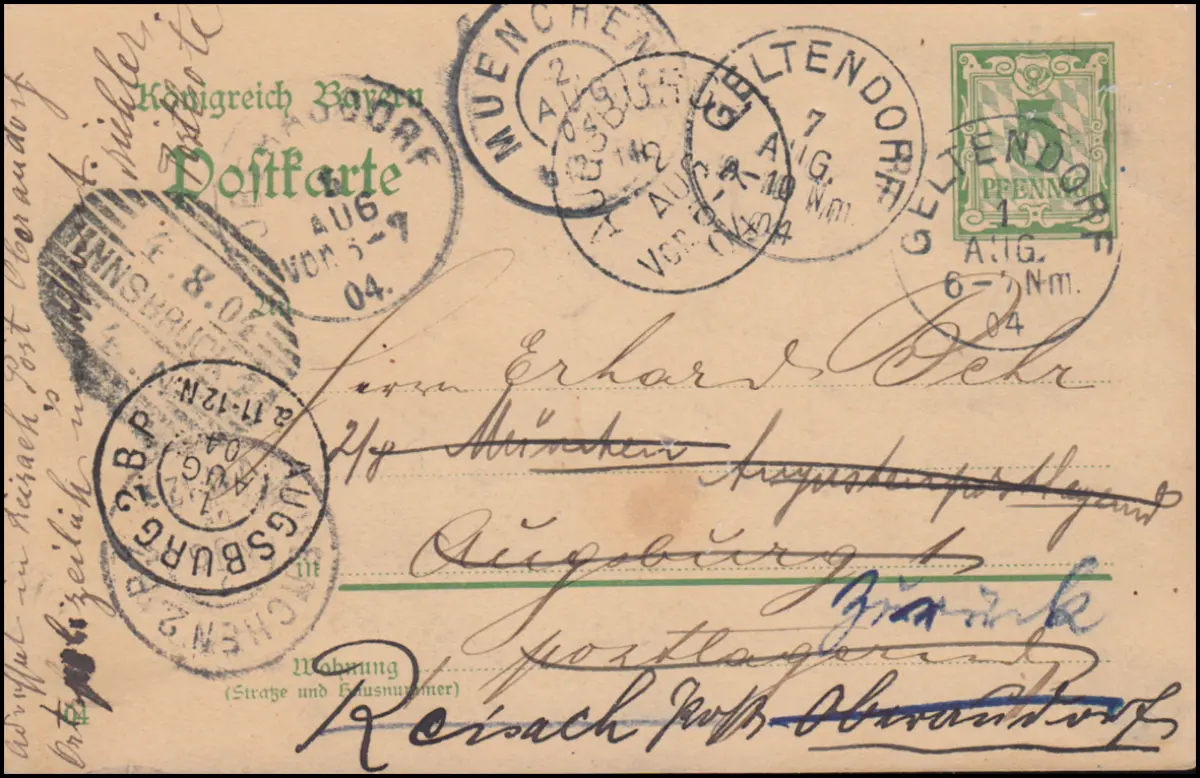 Königreich Bayern
Postkarte
5
PFENNIG
GELTENDORF
1
AUG.
6-7 Nm.
04
GELTENDORF
7
AUG.
Nm.
04
MUENCHEN
2.
AUG
AUGSBURG
2
AUG
VOR.
AUG
VOR. 6-7
04.
INNSBRUCK
4.8.04
AUGSBURG 2.B.P.
a.11-12 N.
1
AUG
04
Herrn Erhard Behr
München
Augustenpostlagernd
Augsburg
in
zurück
postlagernd
Wohnung
(Straße und Hausnummer)
Reisach Post Oberaudorf
04
Adressat in Reisach Post Oberaudorf
ortspolizeilich